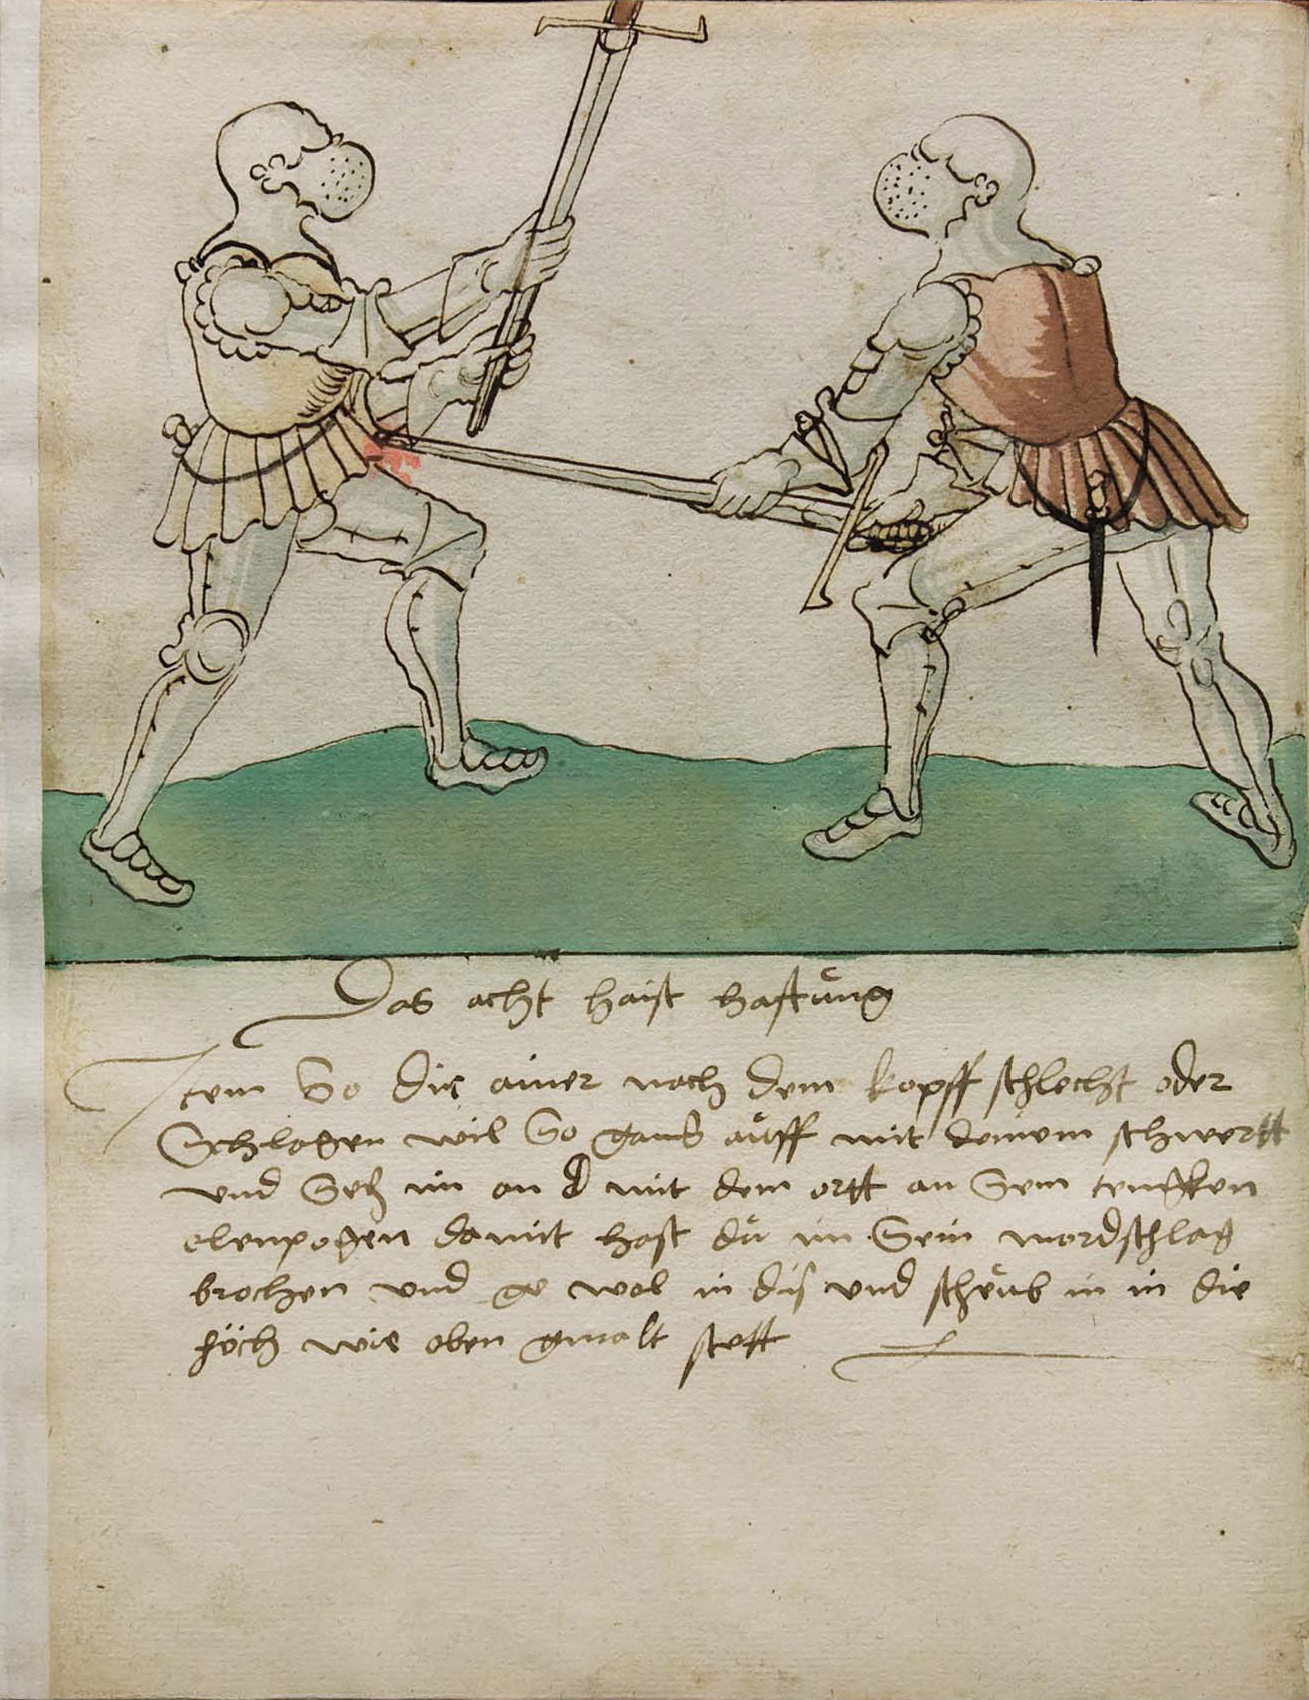 Das acht haist hastůng
Item So dir ainer nach dem kopff schlecht oder
Schlagen wil So gang aůff mit deinem schwertt
vnd Setz im an d mit dem ortt an Sein tencken
elenpogen damit hast dů im Sein mordschlag
brochen vnd ge wol in dis vnd schewb in in die
höch wie oben gmalt stett